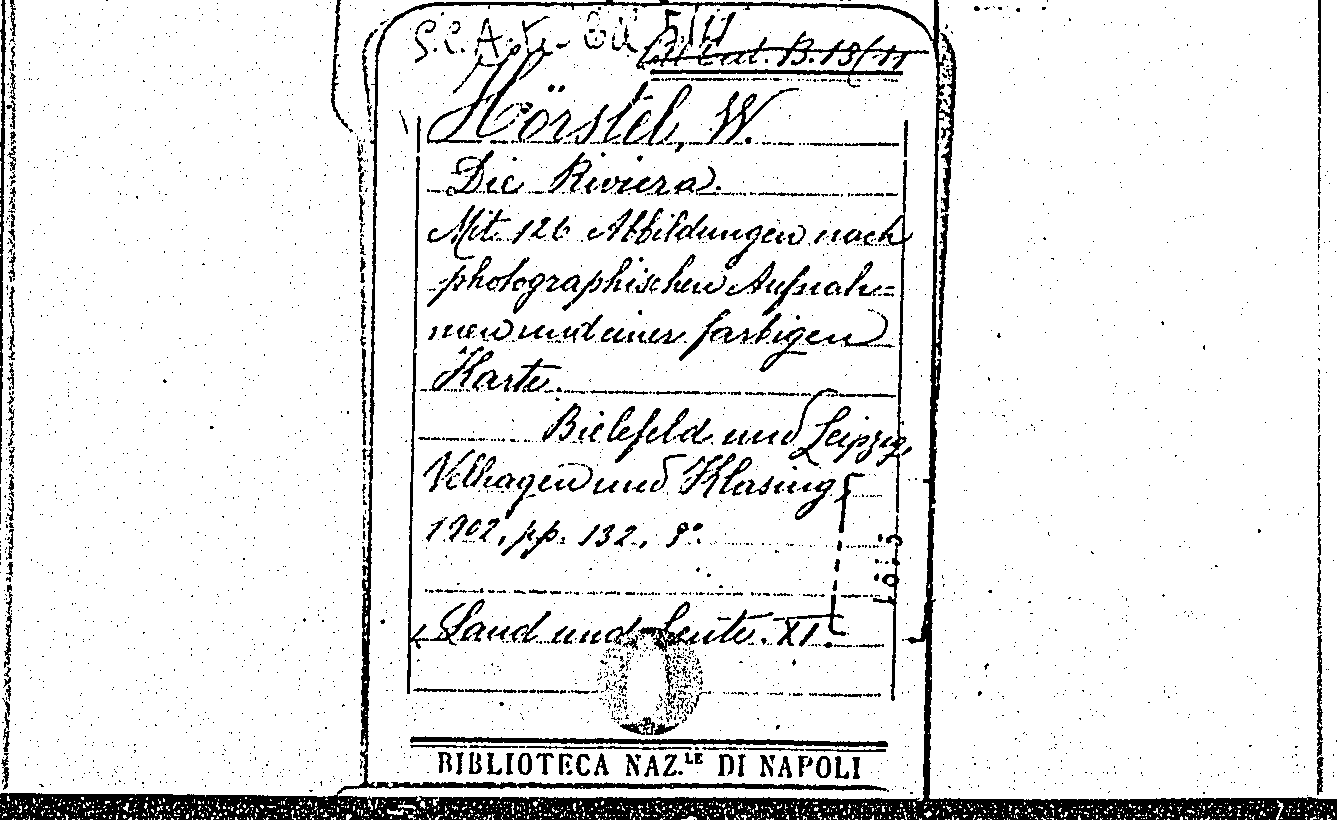 5/11
B. 13/11
Hörstel, W.
Die Riviera.
Mit 126 Abbildungen nach
photographischen Aufnah=
men und einer farbigen
Karte.
Bielefeld und Leipzig,
Velhagen und Klasing,
1902, pp. 132, 8°.
Land und Leute. XI.
BIBLIOTECA NAZ.LE DI NAPOLI